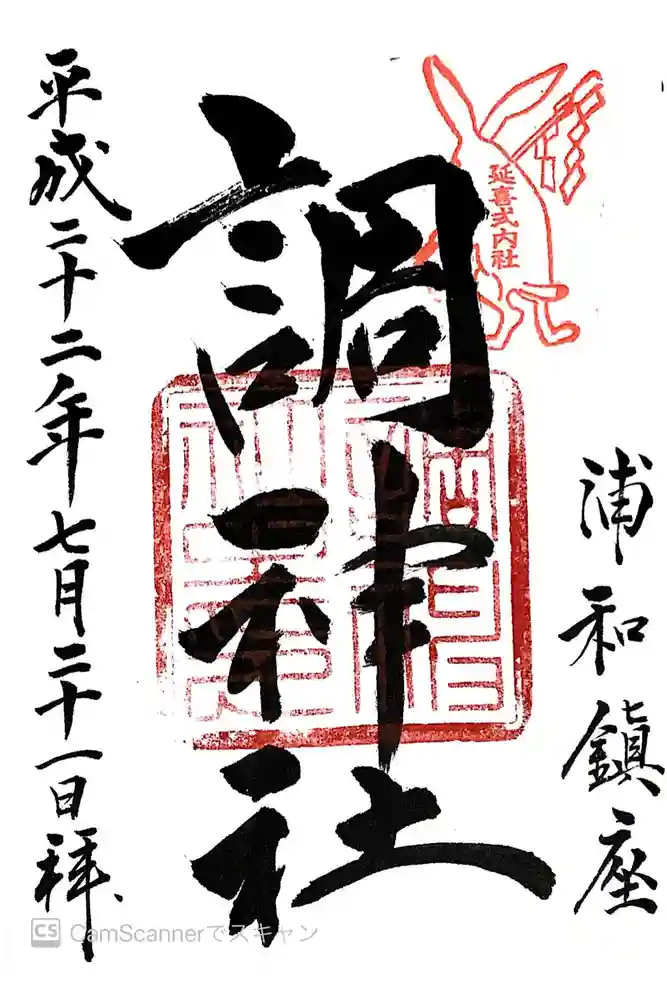 延喜式内社
浦和鎮座
調神社
平成二十二年七月二十一日拝
CS CamScannerでスキャン